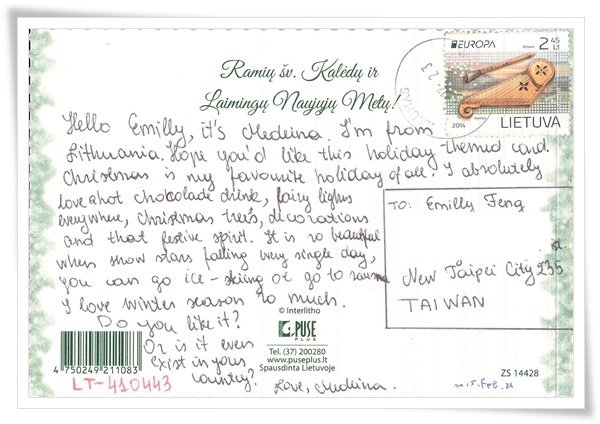 EUROPA
2 45 Lt
2014
LIETUVA
Ramių šv. Kalėdų ir
Laimingų Naujųjų Metų!
Hello Emilly, it's Medeina. I'm from
Lithuania. Hope you'd like this holiday-themed card.
Christmas is my favourite holiday of all. I absolutely
love a hot chocolade drink, fairy lights
everywhere, Christmas trees, decorations
and that festive spirit. It is so beautiful
when snow stars falling every single day,
you can go ice-skiing or go to sauna
I love winter season so much.
Do you like it?
Or is it even
exist in your
country?
Love, Medeina.
TO: Emilly Feng
New Taipei City 235
TAIWAN
© Interlitho
PUSE
PLUS
Tel. (37) 200280
www.puseplus.lt
Spausdinta Lietuvoje
4 750249 211083
LT-410443
ZS 14428
2015. Feb. 21